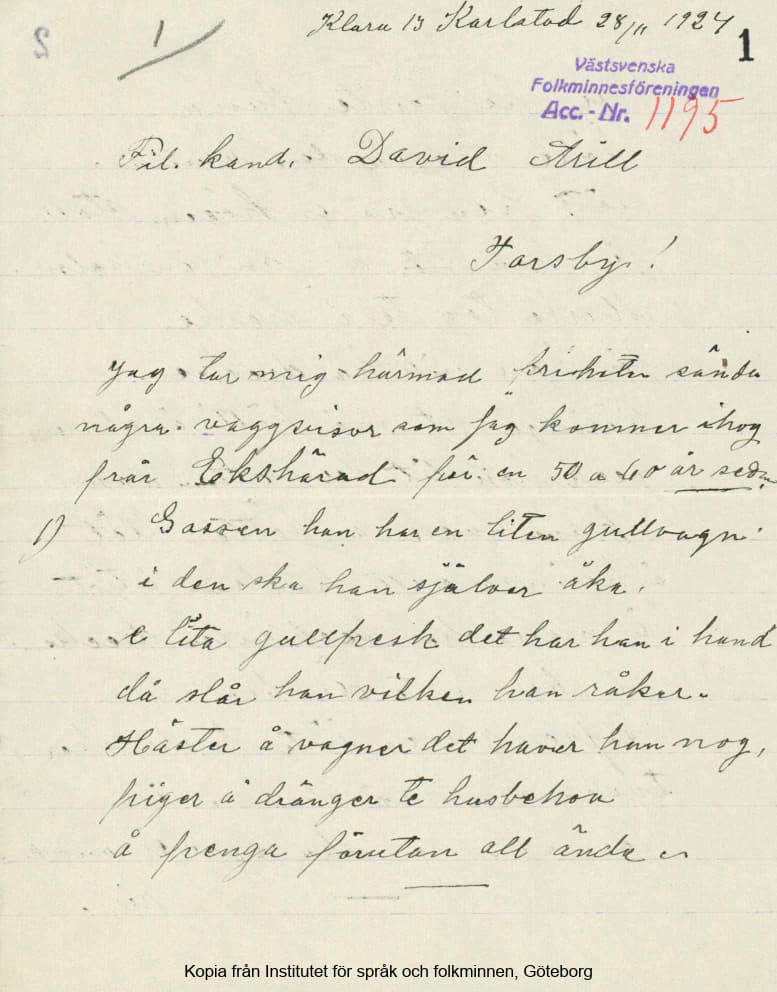 1
Klara 13 Karlstad 28/11 1924
1
Västsvenska
Folkminnesföreningen
Acc.-Nr. 1195
Fil. kand. David Arill
Torsby!
Jag tar mig härmed friheten sända
några vaggvisor som jag kommer ihog
från Ekshärad för en 50 a 60 år sedan
1) Gossen han har en liten gullvagn
i den ska han sjålver åka.
e lita gullpisk det har han i hand
då slår han vilken han råker.
Häster å vagner det haver han nog,
piger å dränger te husbehov
å penga förutan all ände
Kopia från Institutet för språk och folkminnen, Göteborg